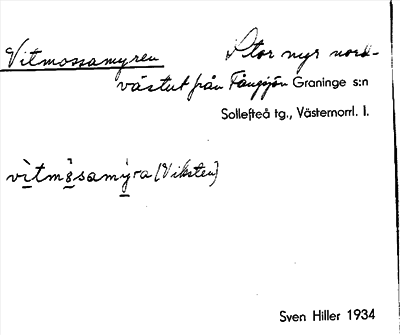 Vitmossamyren Stor myr nord-
västut från Tångsjön Graninge s:n
Sollefteå tg., Västernorrl. l.
vìtmåsamỳra (Viksten)
Sven Hiller 1934